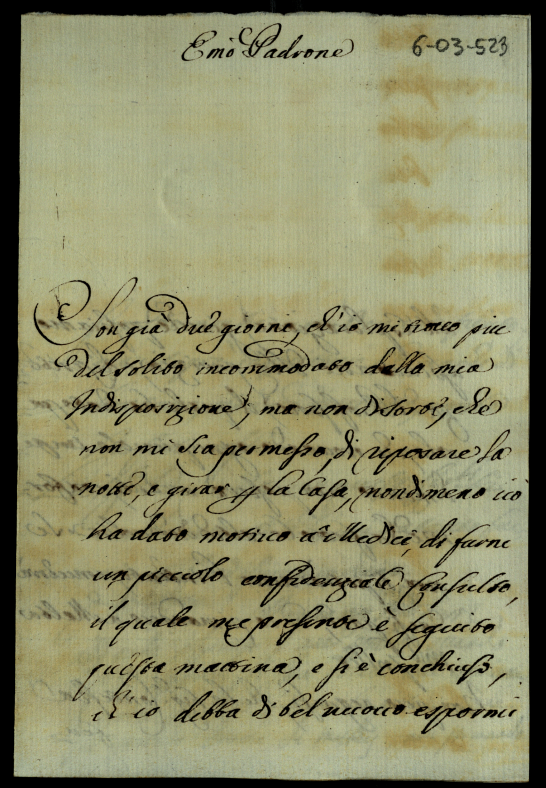 Emõ Padrone
6-03-523
Son già due giorni, ch'io mi trovo più
del solito incommodato dalla mia
Indisposizione, ma non di sorte, che
non mi sia permesso, di riposare la
notte, e girar p la Casa, nondimeno ciò
ha dato motivo a' Medici, di farne
un piccolo confidenziale Consulto,
il quale me presente è seguito
questa mattina, e si è conchiuso,
ch'io debba di bel nuovo espormi